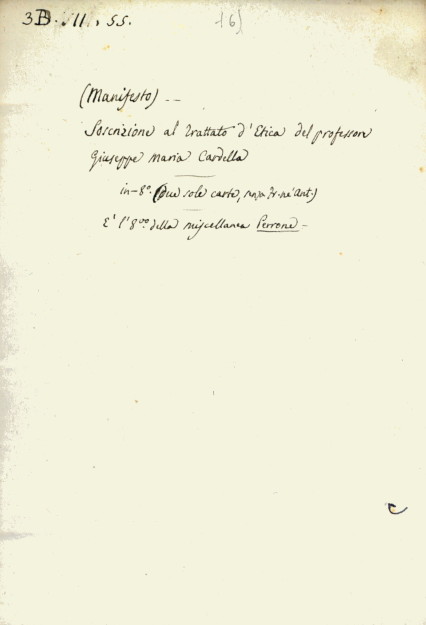 3 B. VII. 55. (6)
(Manifesto) --
Soscrizione al trattato d'Etica del professore
Giuseppe Maria Cardella
in-8º. (Due sole carte, senza fr. nè ant.)
E' l'8vo. della miscellanea Perrone -